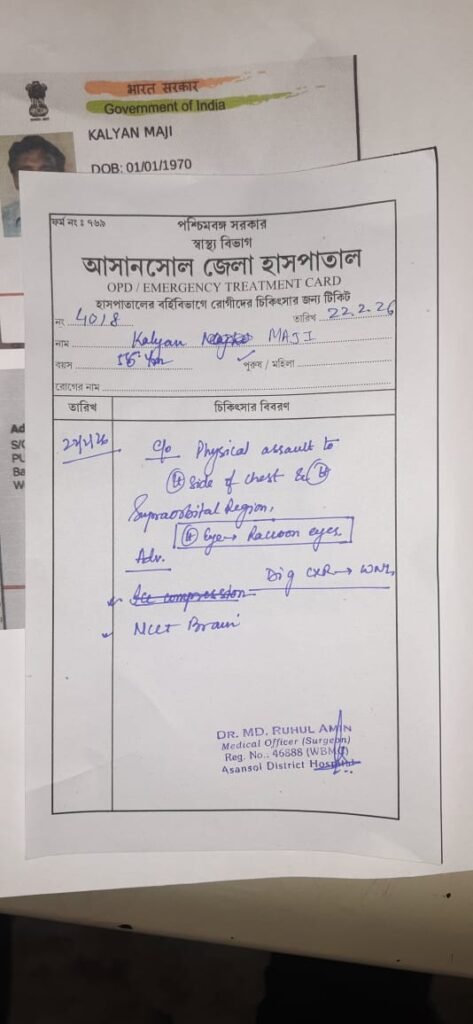 भारत सरकार
Government of India
KALYAN MAJI
DOB: 01/01/1970
ফর্ম নং : ৭৬৯
পশ্চিমবঙ্গ সরকার
স্বাস্থ্য বিভাগ
আসানসোল জেলা হাসপাতাল
OPD / EMERGENCY TREATMENT CARD
হাসপাতালের বহির্বিভাগে রোগীদের চিকিৎসার জন্য টিকিট
নং 4018 তারিখ 22.2.26
নাম Kalyan MAJI
বয়স পুরুষ / মহিলা
রোগের নাম
তারিখ চিকিৎসার বিবরণ
22/2/26 C/o Physical assault to
Lt side of chest &
Supraorbital Region,
Eye → Raccoon eyes.
Adv.
Dig CXR → WNL
Ice compression
NCCT Brain
DR. MD. RUHUL AMIN
Medical Officer (Surgeon)
Reg. No.. 46888 (WBMC)
Asansol District Hospital
Ad
S/O
PU
Ba
W